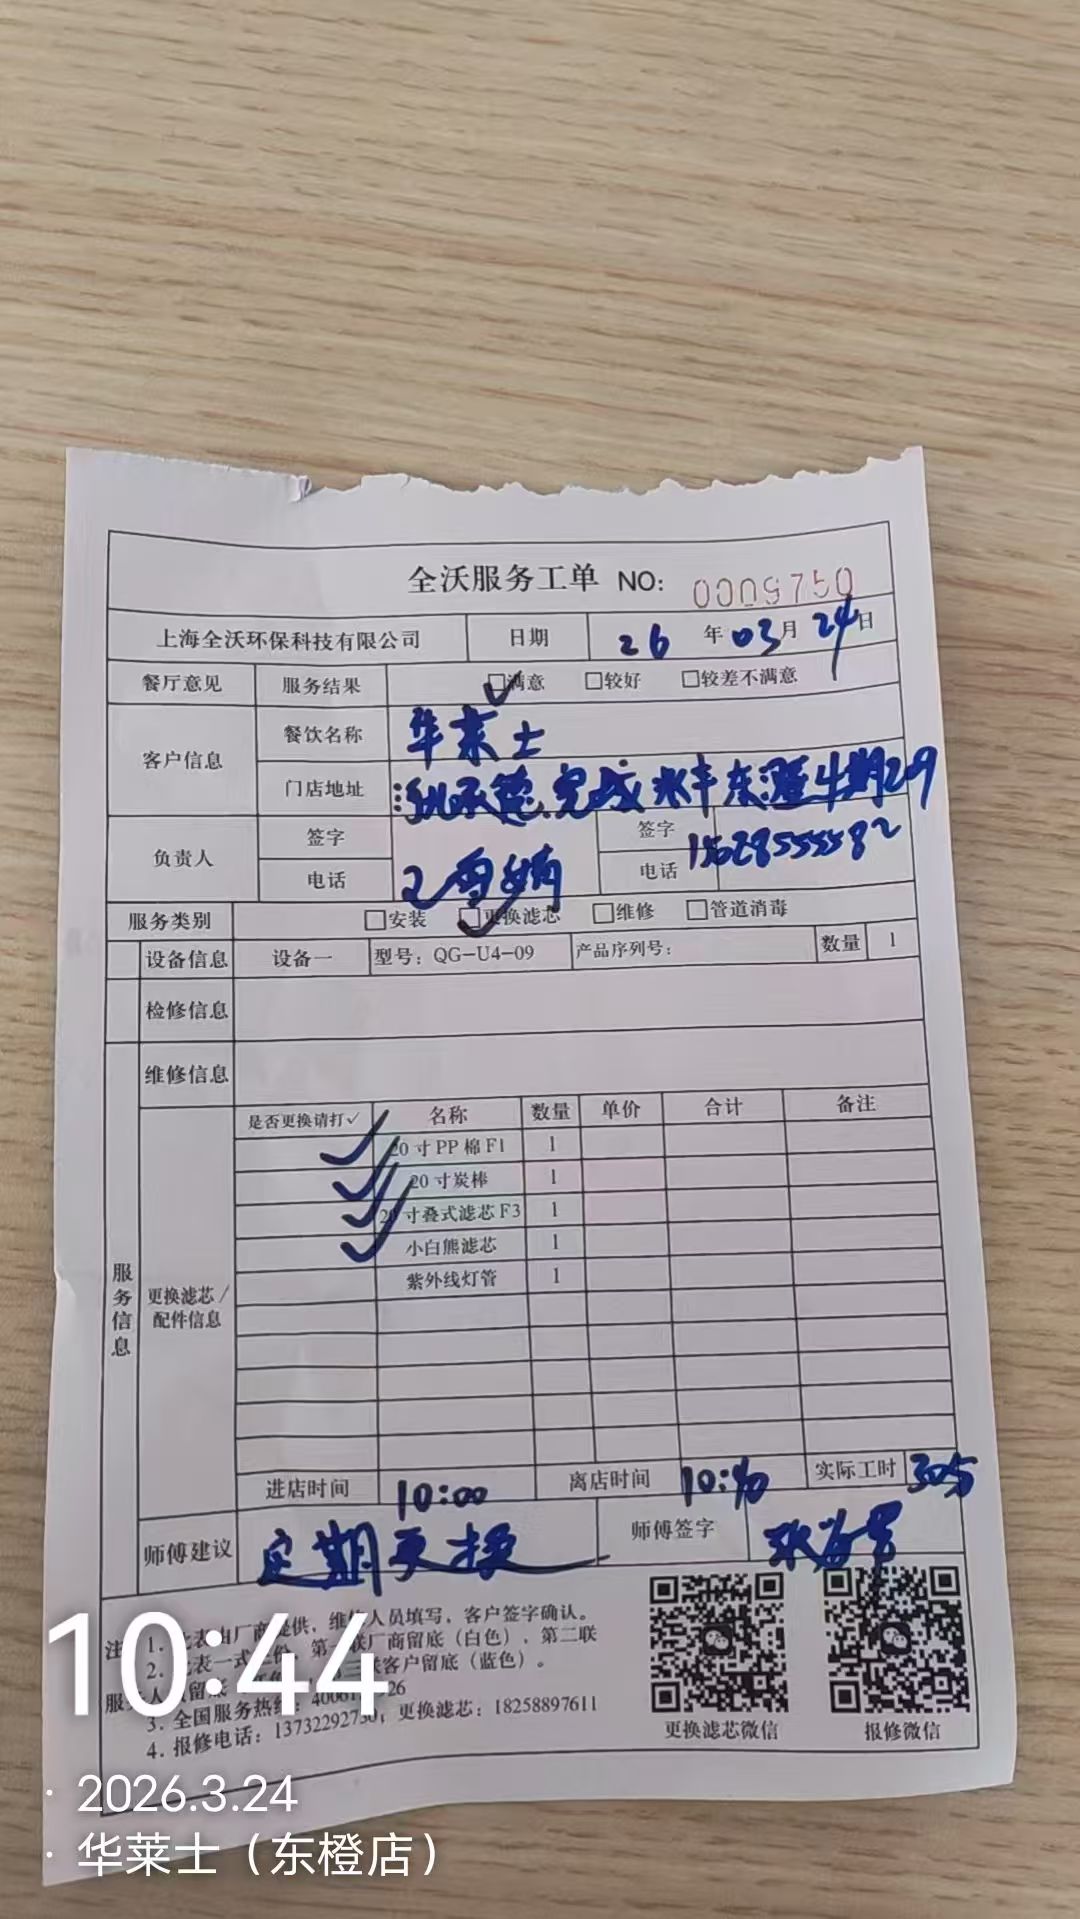 全沃服务工单 NO: 0009750
上海全沃环保科技有限公司 日期 26 年 03 月 24 日
餐厅意见 服务结果 ☑满意 □较好 □较差不满意
客户信息 餐饮名称 华莱士
门店地址
负责人 签字 签字
电话 电话
服务类别 □安装 ☑更换滤芯 □维修 □管道消毒
设备信息 设备一 型号：QG-U4-09 产品序列号： 数量 1
检修信息
维修信息
服务信息
更换滤芯/配件信息
是否更换请打✓ 名称 数量 单价 合计 备注
✓ 20寸PP棉F1 1
✓ 20寸炭棒 1
✓ 20寸叠式滤芯F3 1
✓ 小白熊滤芯 1
紫外线灯管 1
进店时间 10:00 离店时间 实际工时
师傅建议 定期更换 师傅签字
注 1. 此表由厂商提供，维修人员填写，客户签字确认。
2. 此表一式三份，第一联厂商留底（白色），第二联
服务人员留底 第三联客户留底（蓝色）。
3. 全国服务热线：
4. 报修电话： 更换滤芯：18258897611
更换滤芯微信 报修微信
10:44
· 2026.3.24
· 华莱士（东橙店）